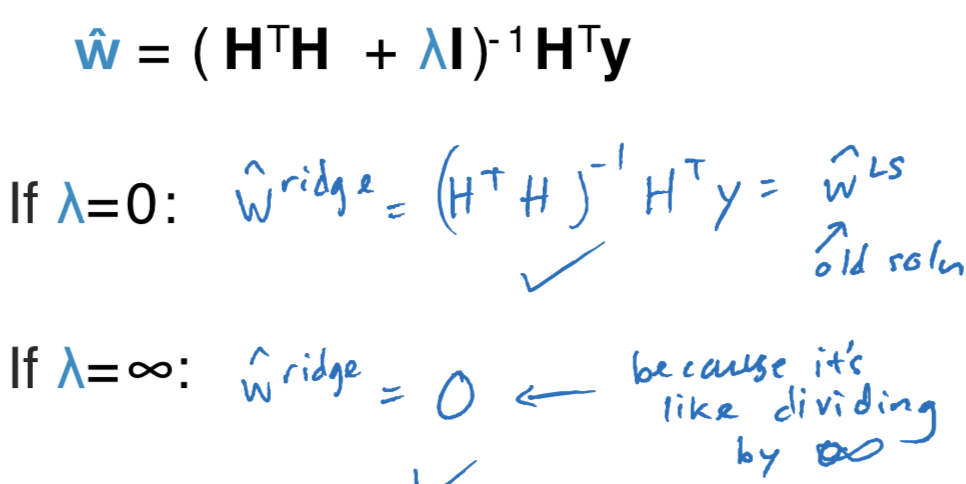 ŵ = ( HᵀH + λI)⁻¹Hᵀy
If λ=0: ŵ ridge = (Hᵀ H)⁻¹ Hᵀ y = ŵ LS
old soln
If λ=∞: ŵ ridge = 0 ← because it's
like dividing
by ∞